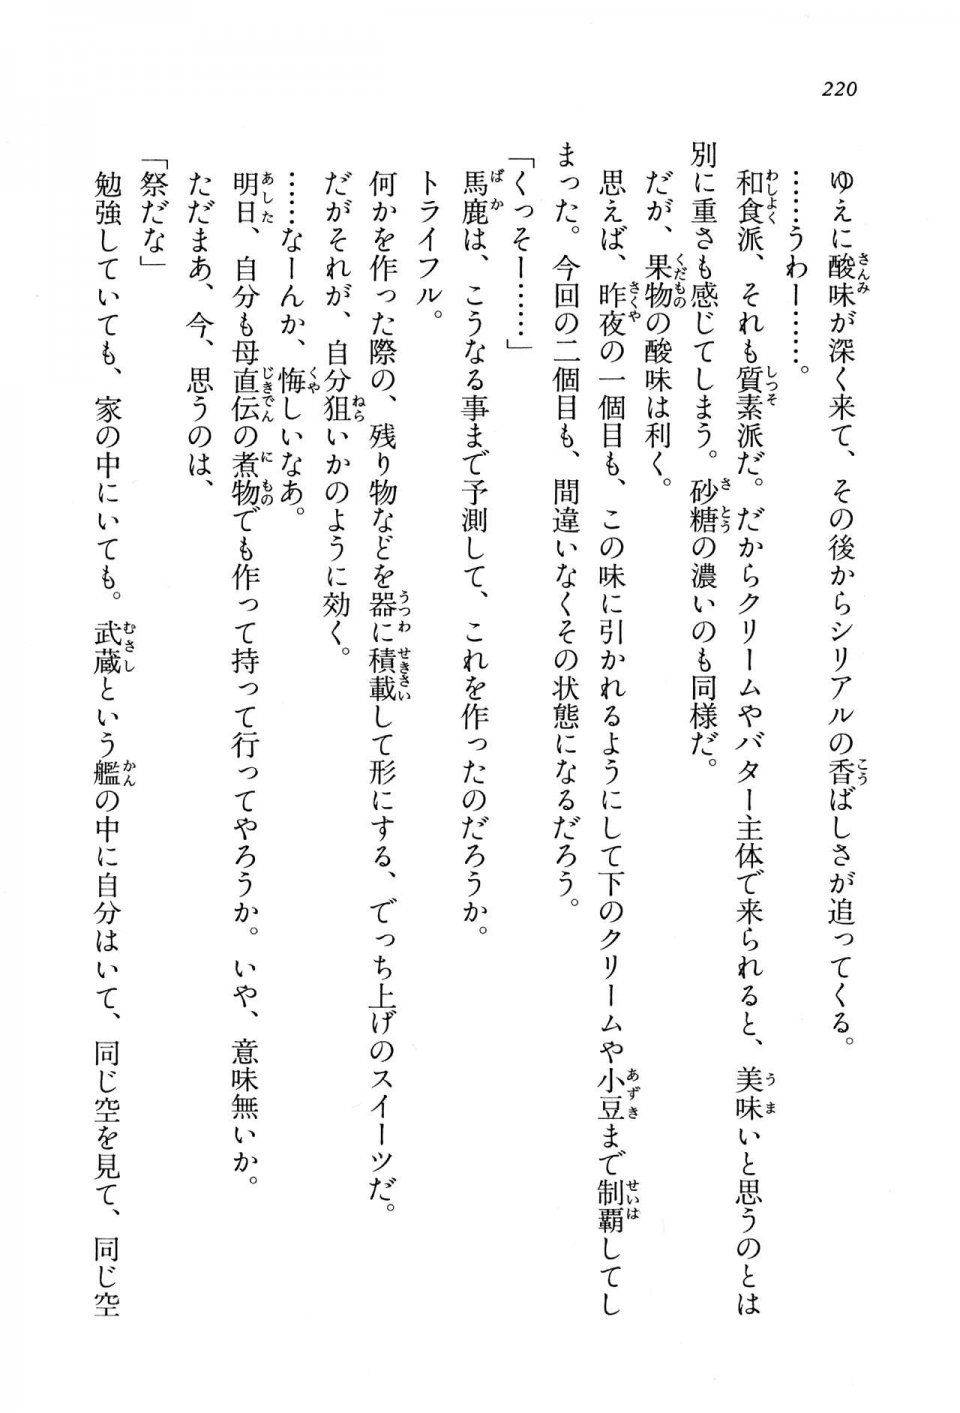 220
ゆえに酸味が深く来て、その後からシリアルの香ばしさが追ってくる。
……うわー……。
和食派、それも質素派だ。だからクリームやバター主体で来られると、美味いと思うのとは
別に重さも感じてしまう。砂糖の濃いのも同様だ。
だが、果物の酸味は利く。
思えば、昨夜の一個目も、この味に引かれるようにして下のクリームや小豆まで制覇してし
まった。今回の二個目も、間違いなくその状態になるだろう。
「くっそー……」
馬鹿は、こうなる事まで予測して、これを作ったのだろうか。
トライフル。
何かを作った際の、残り物などを器に積載して形にする、でっち上げのスイーツだ。
だがそれが、自分狙いかのように効く。
……なーんか、悔しいなあ。
明日、自分も母直伝の煮物でも作って持って行ってやろうか。いや、意味無いか。
ただまあ、今、思うのは、
「祭だな」
勉強していても、家の中にいても。武蔵という艦の中に自分はいて、同じ空を見て、同じ空